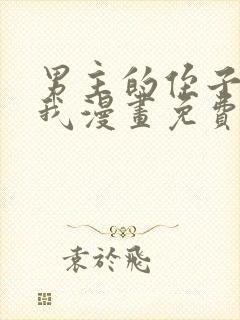 男主的侄子
我漫畫免費
袁於飛